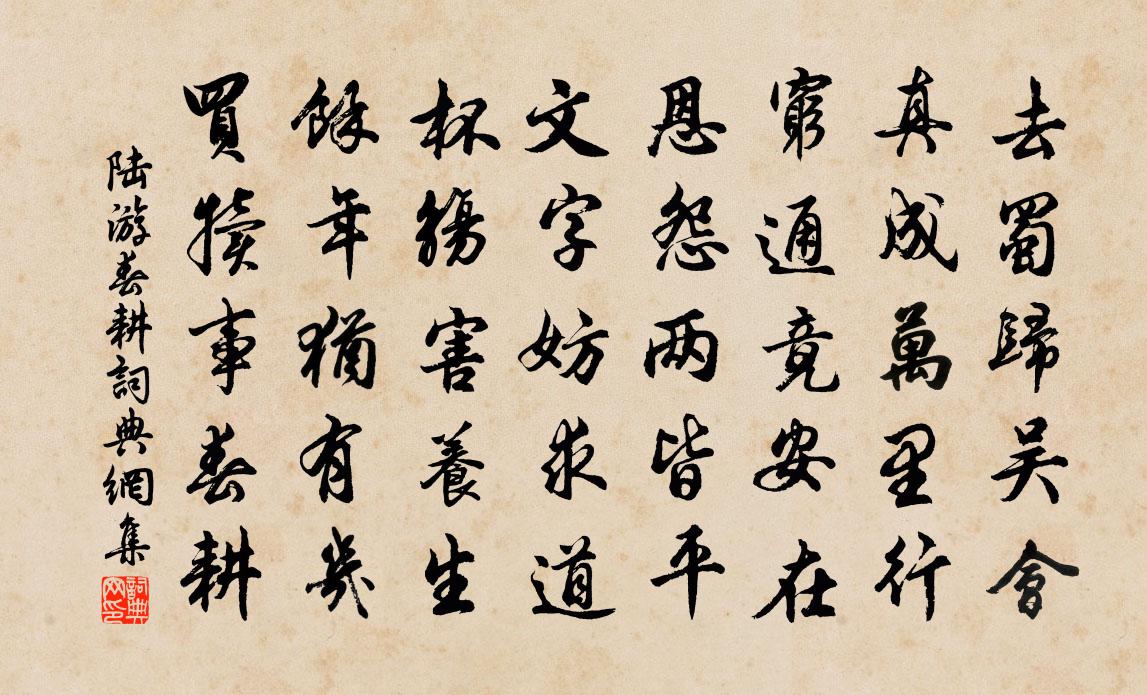 去蜀歸吴會
真成萬里行
窮通竟安在
恩怨兩皆平
文字妨求道
杯觴害養生
餘年猶有幾
買犢事春耕
陆游春耕詞典網集
詞典网印